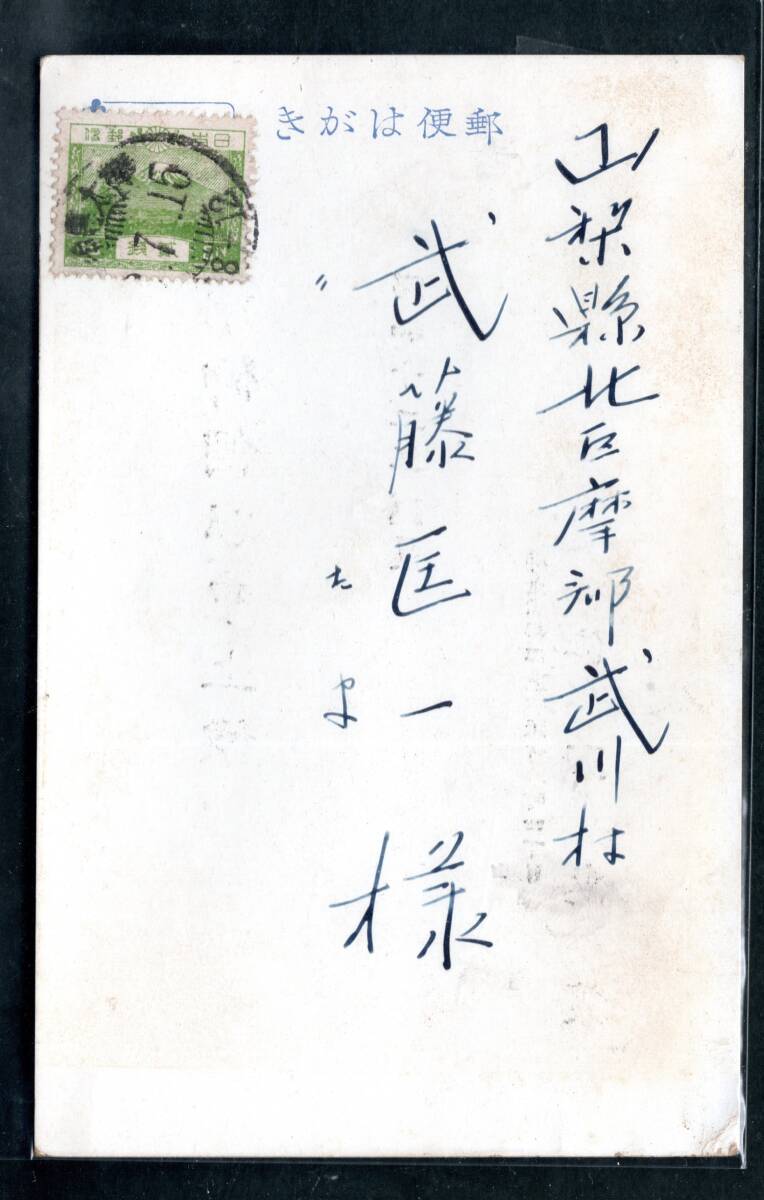 郵便はがき
山梨縣北巨摩郡武川村
武藤匡一様
〃
日本郵便
7.15